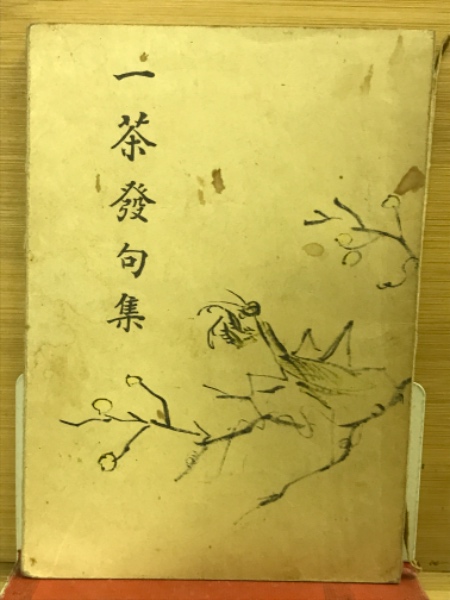 一茶發句集